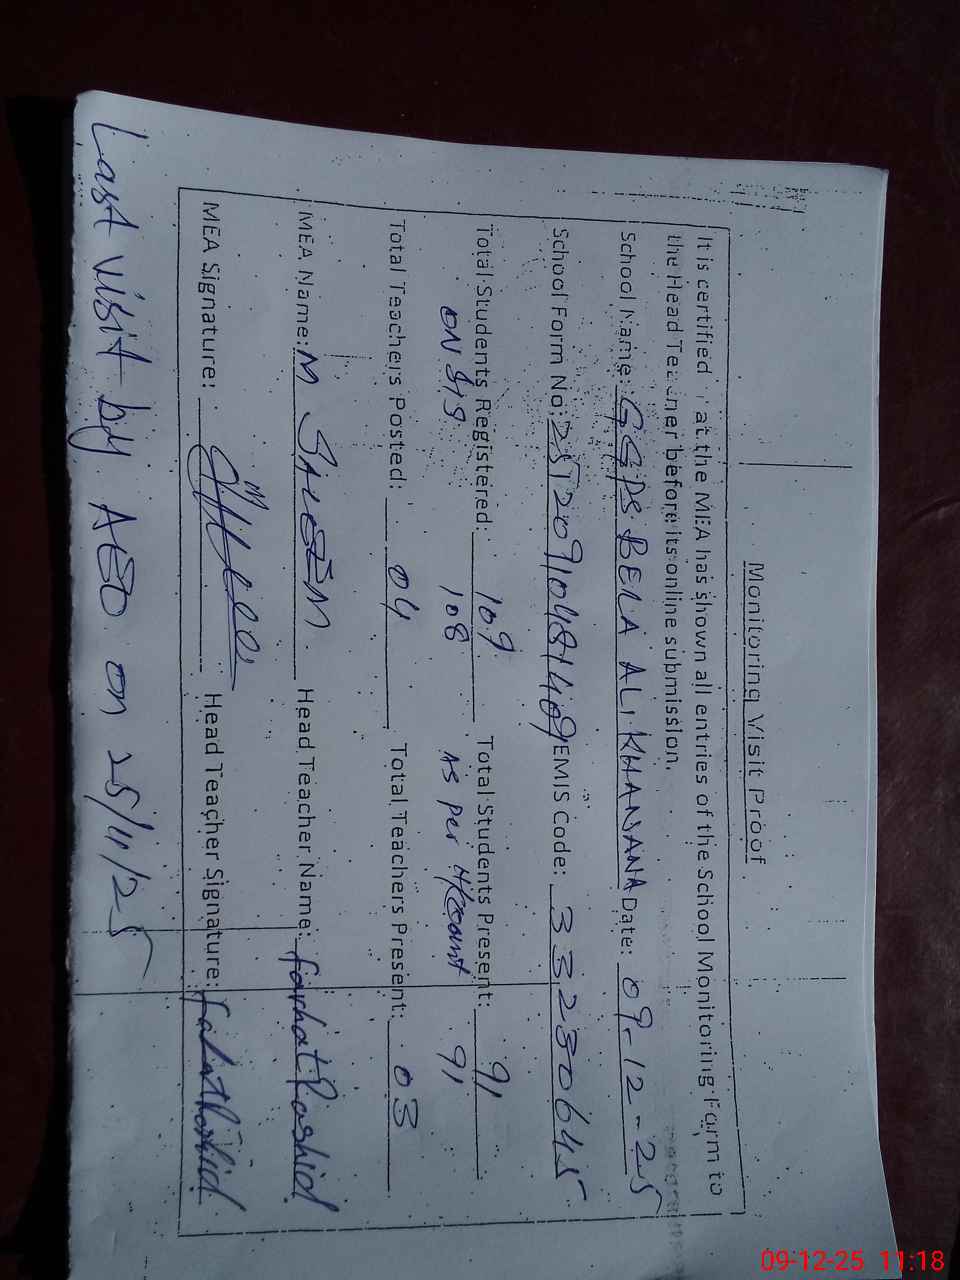 Monitoring Visit Proof
It is certified that the MEA has shown all entries of the School Monitoring Form to
the Head Teacher before its online submission.
School Name: GGPS BELA ALI KHANANA Date: 09-12-25
School Form No: EMIS Code: 33230645
Total Students Registered: 109 Total Students Present: 91
ON SIS 108 AS Per H/Count 91
Total Teachers Posted: 04 Total Teachers Present: 03
MEA Name: M SALEEM Head Teacher Name: Farhat Rashid
MEA Signature: Head Teacher Signature: Farhat Rashid
Last visit by AEO on 25/11/25
09-12-25 11:18